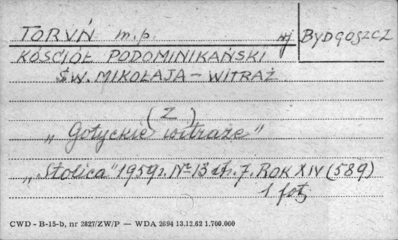 TORUŃ m.p. wj BYDGOSZCZ
KOŚCIÓŁ PODOMINIKAŃSKI
ŚW. MIKOŁAJA - WITRAŻ
(Z)
"Gotyckie witraże"
"Stolica" 1959 r. Nº 13 str. 7. ROK XIV (589)
1 fot.
CWD - B-15-b, nr 2827/ZW/P — WDA 2694 13.12.62 1.700.000